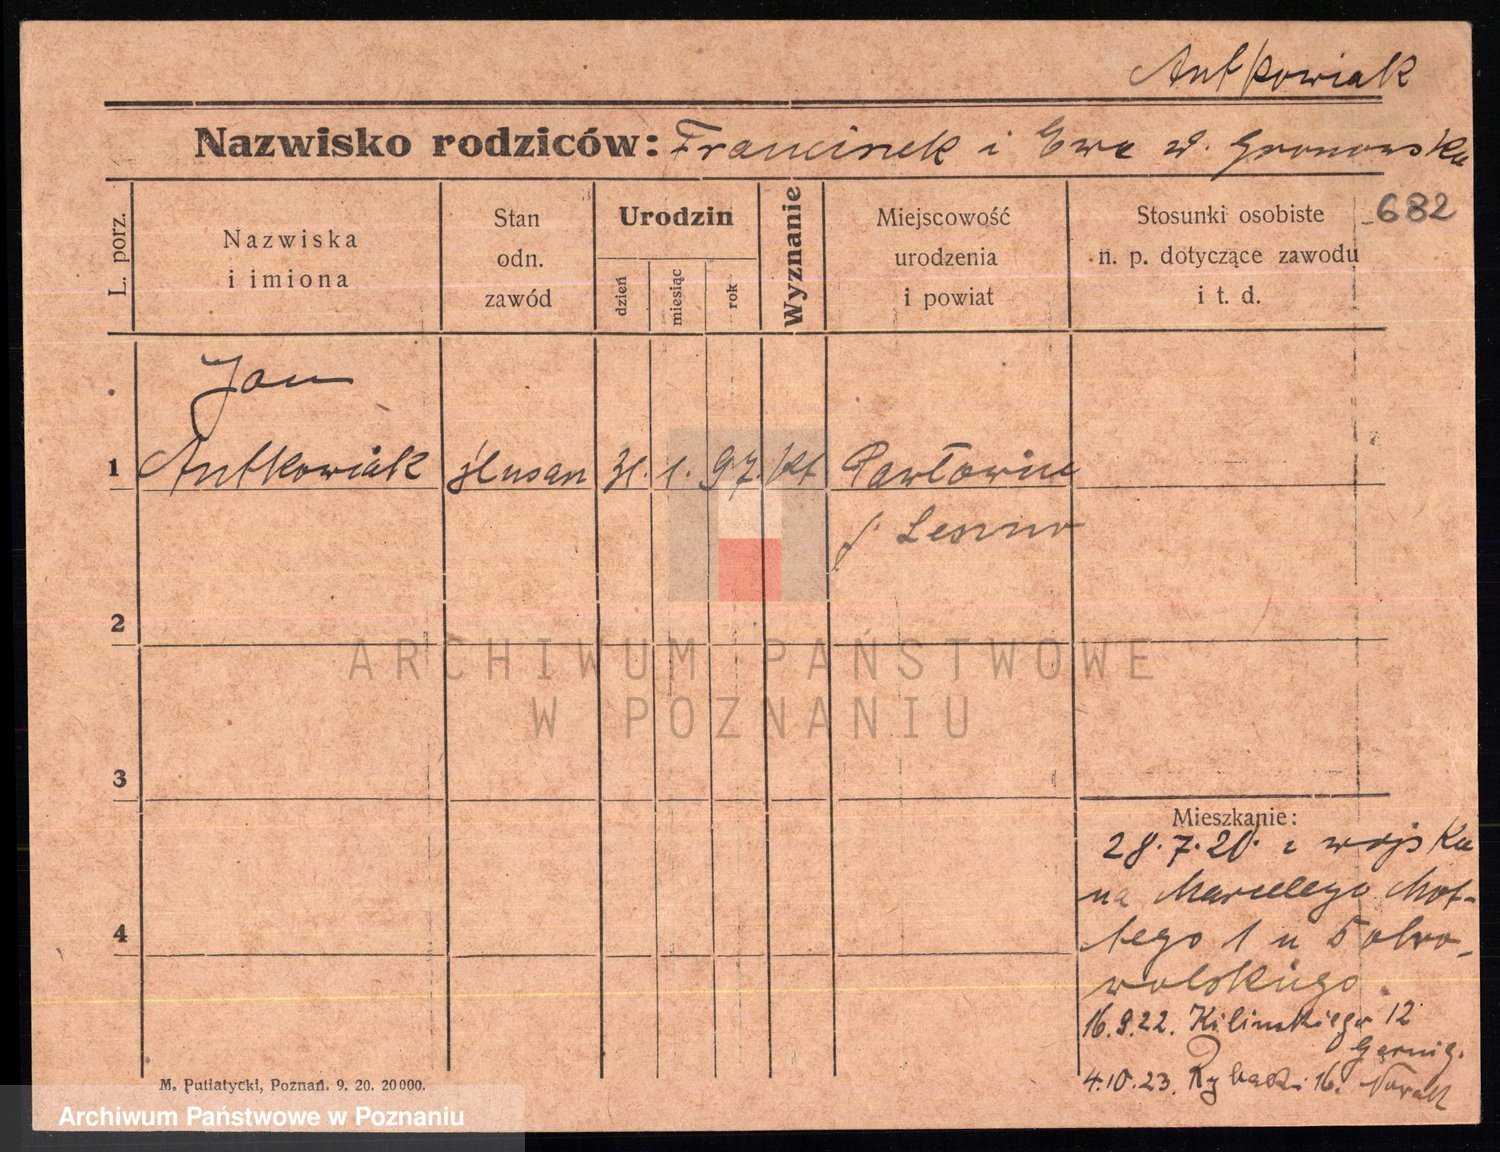 Antkowiak
Nazwisko rodziców: Franciszek i Ewa z d. Gronowska
682
L. porz.
Nazwiska
i imiona
Stan
odn.
zawód
Urodzin
dzień
miesiąc
rok
Wyznanie
Miejscowość
urodzenia
i powiat
Stosunki osobiste
n. p. dotyczące zawodu
i t. d.
Jan
1 Antkowiak ślusarz 31. 1. 97. kt Pawłowice
p. Leszno
2
ARCHIWUM PAŃSTWOWE
W POZNANIU
3
Mieszkanie:
28.7.20. z wojska
na Marcelego Mot-
tego 1 u Dobro-
wolskiego
4
16.9.22. Kilińskiego 12
4.10.23. Rybacki 16. Nowak
M. Putiatycki, Poznań. 9. 20. 20000.
Archiwum Państwowe w Poznaniu